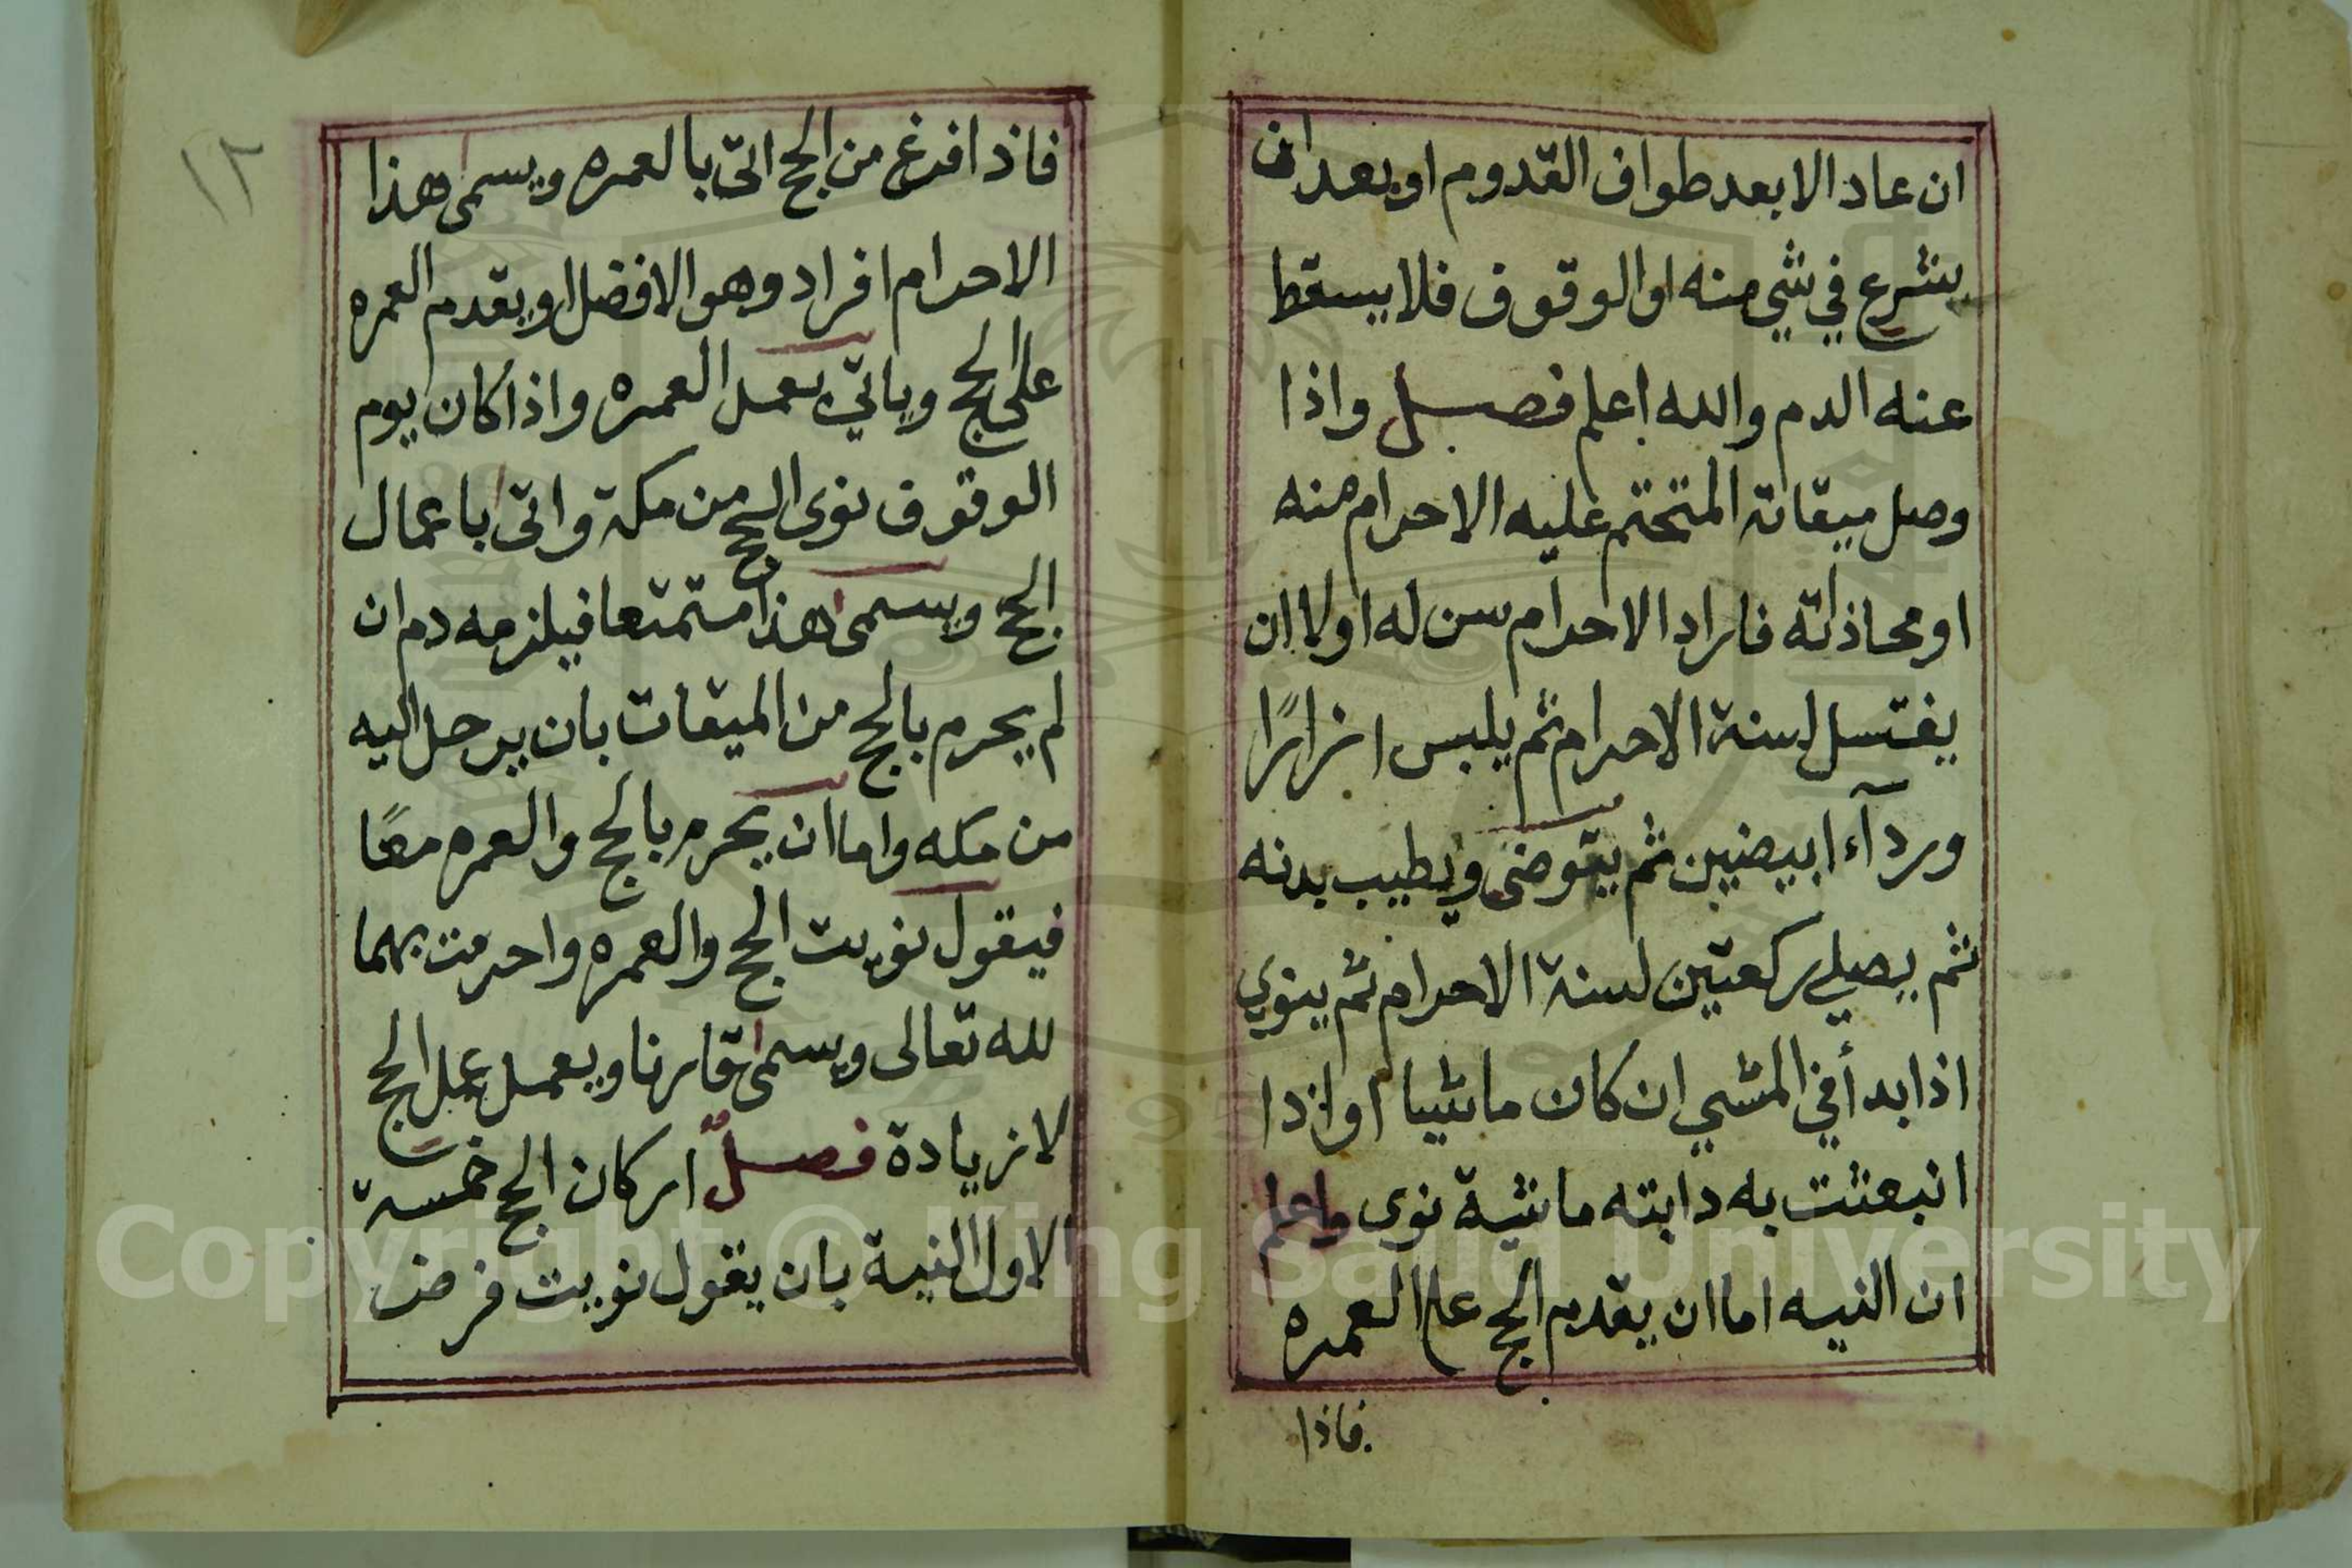 ان عاد الا بعد طواف القدوم او بعد ان
يشرع في شي منه او الوقوف فلا يسقط
عنه الدم والله اعلم فصل واذا
وصل ميقاته المتحتم عليه الاحرام منه
او محاذاته فاراد الاحرام سن له اولا ان
يغتسل لسنة الاحرام ثم يلبس ازارًا
وردآء ابيضين ثم يتوضى ويطيب بدنه
ثم يصلي ركعتين لسنة الاحرام ثم ينوي
اذا بدأ في المشي ان كان ماشيا او اذا
انبعثت به دابته ماشية نوى واعلم
ان النيه اما ان يقدم الحج على العمره
فاذا
١٢
فاذا فرغ من الحج اتى بالعمره ويسمى هذا
الاحرام افراد وهو الافضل او يقدم العمره
على الحج وياتي بعمل العمره واذا كان يوم
الوقوف نوى الحج من مكة واتى باعمال
الحج ويسمى هذا متمتعا فيلزمه دم ان
لم يحرم بالحج من الميقات بان يرحل اليه
من مكه واما ان يحرم بالحج والعمره معًا
فيقول نويت الحج والعمره واحرمت بهما
لله تعالى ويسمى قارنا ويعمل عمل الحج
لا زيادة فصلٌ اركان الحج خمسة
الاول النية بان يقول نويت فرض
Copyright © King Saud University